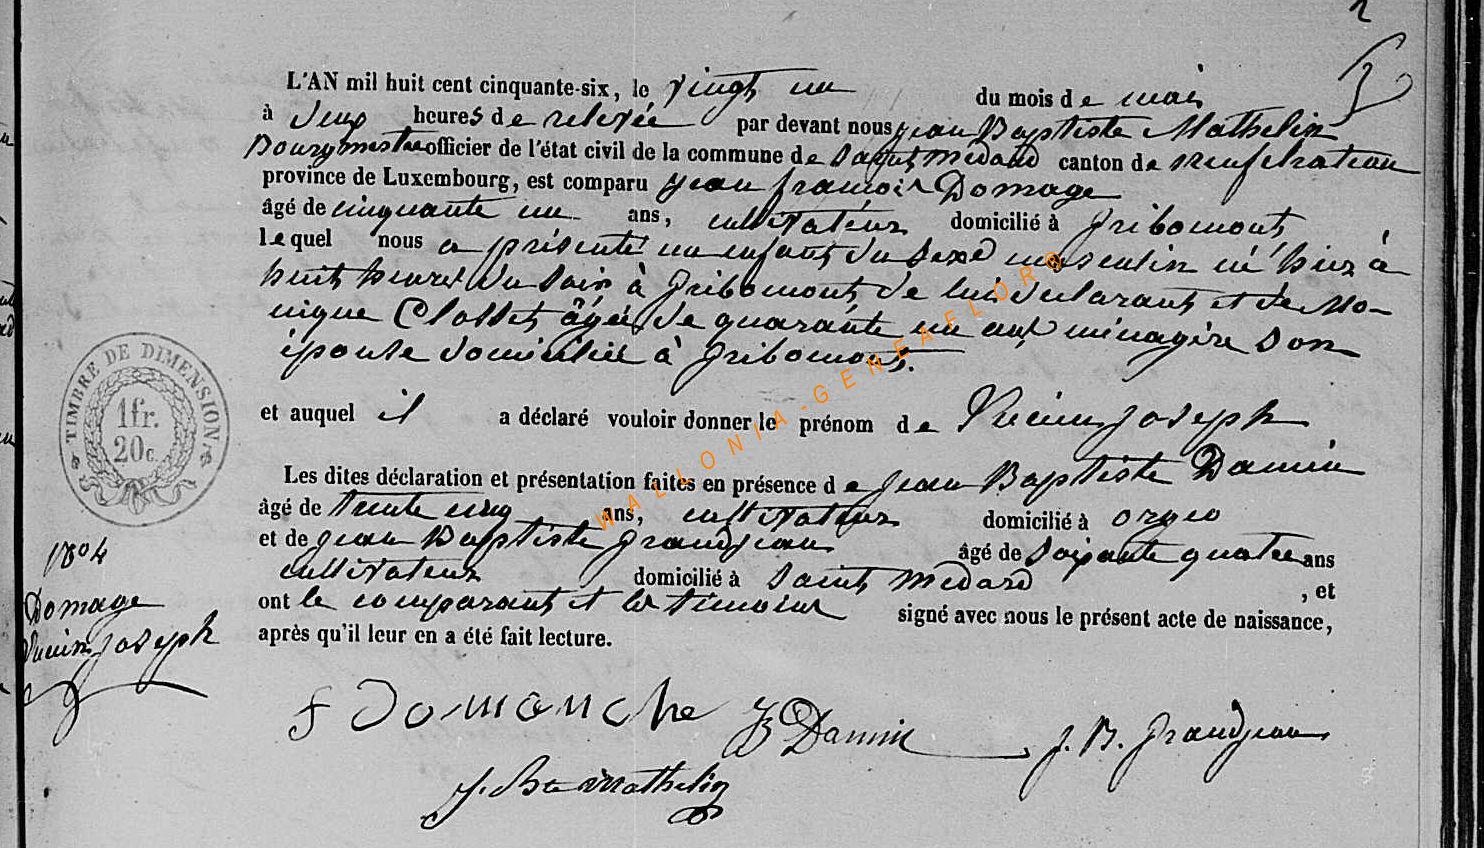 2
L'AN mil huit cent cinquante-six, le vingt un du mois de mai
à deux heures de relevée par devant nous jean Baptiste Mathelin
Bourgmestre officier de l'état civil de la commune de Saint médard canton de neufchateau
province de Luxembourg, est comparu jean françois Domage
âgé de cinquante un ans, cultivateur domicilié à gribomont
lequel nous a présenté un enfant du sexe masculin né hier à
huit heures du soir à gribomont, de lui déclarant et de Mo-
nique Closset âgée de quarante un ans ménagère son
épouse domiciliée à gribomont.
et auquel il a déclaré vouloir donner le prénom de joseph
Les dites déclaration et présentation faites en présence de jean Baptiste Damin
âgé de trente cinq ans, cultivateur domicilié à orgeo
et de jean Baptiste grandjean âgé de soixante quatre ans
cultivateur domicilié à Saint médard, et
ont le comparant et les témoins signé avec nous le présent acte de naissance,
après qu'il leur en a été fait lecture.
TIMBRE DE DIMENSION
1fr.
20c.
Domage
joseph
f Domanche JB Damin J. B. grandjean
J. Bte Mathelin
WALLONIA-GENEAFLOR@